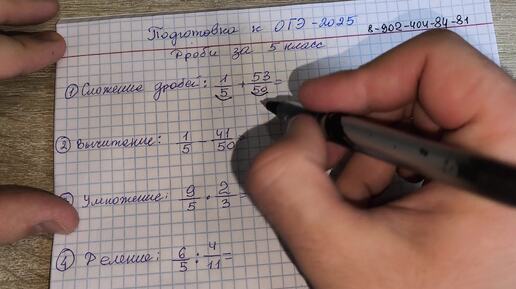 Подготовка к ОГЭ-2025
8-902-404-84-81
Дроби за 5 класс
① Сложение дробей: 1/5 + 53/50 =
② Вычитание: 1/5 - 41/50
Умножение: 9/5 · 2/3 =
④ Деление: 6/5 : 4/11 =